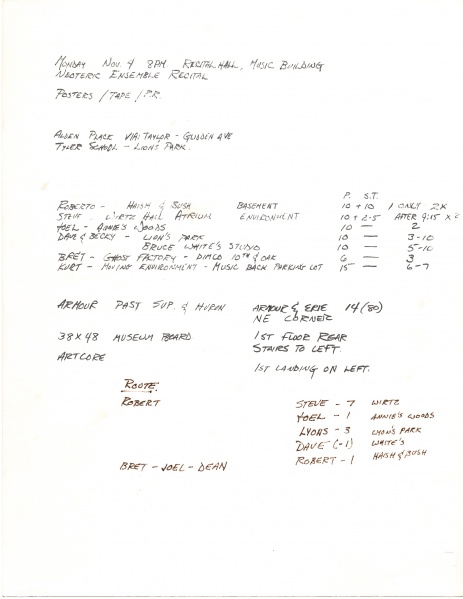 MONDAY NOV. 4 8PM RECITAL HALL, MUSIC BUILDING
NEOTERIC ENSEMBLE RECITAL
POSTERS / TAPE / P.R.
ALDEN PLACE VIA: TAYLOR - GLIDDEN AVE
TYLER SCHOOL - LIONS PARK.
P. S.T.
ROBERTO - HAISH & BUSH BASEMENT 10 + 10 1 ONLY 2X
STEVE. WIRTZ HALL ATRIUM ENVIRONMENT 10 + 2-5 AFTER 9:15
JOEL - ANNIE'S WOODS 10 — 2
DAVE & BECKY - LION'S PARK 10 — 3-10
BRUCE WHITE'S STUDIO 10 — 5-10
BRET - GHOST FACTORY - DIMCO 10TH & OAK 6 — 3
KURT - MOVING ENVIRONMENT - MUSIC BACK PARKING LOT 15 — 6-7
ARMOUR PAST SUP. & HURON ARMOUR & ERIE 14 (80)
NE CORNER
38 X 48 MUSEUM BOARD 1ST FLOOR REAR
STAIRS TO LEFT.
ARTCORE
1ST LANDING ON LEFT.
ROUTE:
ROBERT STEVE - 7 WIRTZ
JOEL - 1 ANNIE'S WOODS
LYONS - 3 LYON'S PARK
DAVE (-1) WHITE'S
ROBERT - 1 HAISH & BUSH
BRET - JOEL - DEAN